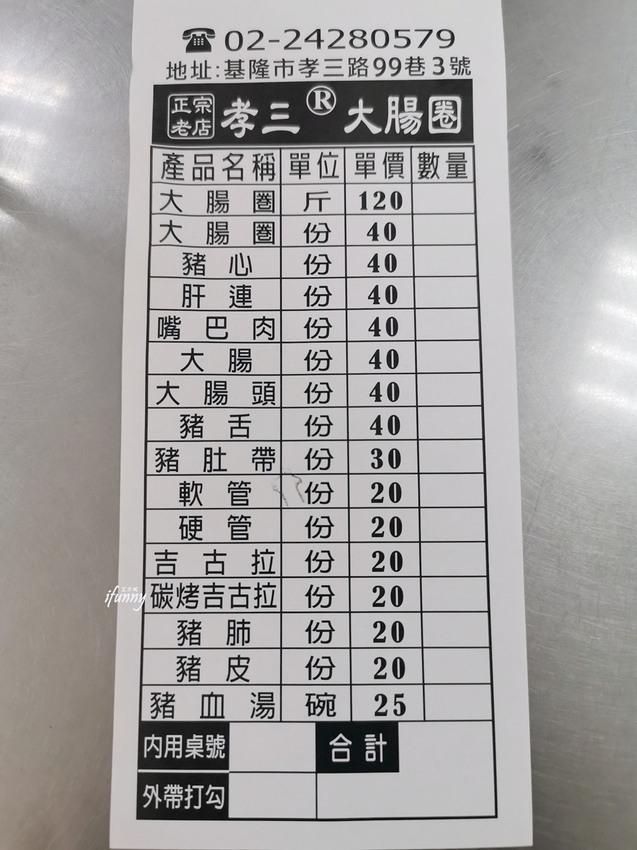 ☎ 02-24280579
地址:基隆市孝三路99巷3號
正宗老店 孝三® 大腸圈
產品名稱 單位 單價 數量
大腸圈 斤 120
大腸圈 份 40
豬心 份 40
肝連 份 40
嘴巴肉 份 40
大腸 份 40
大腸頭 份 40
豬舌 份 40
豬肚帶 份 30
軟管 份 20
硬管 份 20
吉古拉 份 20
碳烤吉古拉 份 20
豬肺 份 20
豬皮 份 20
豬血湯 碗 25
內用桌號 合計
外帶打勾
ifunny